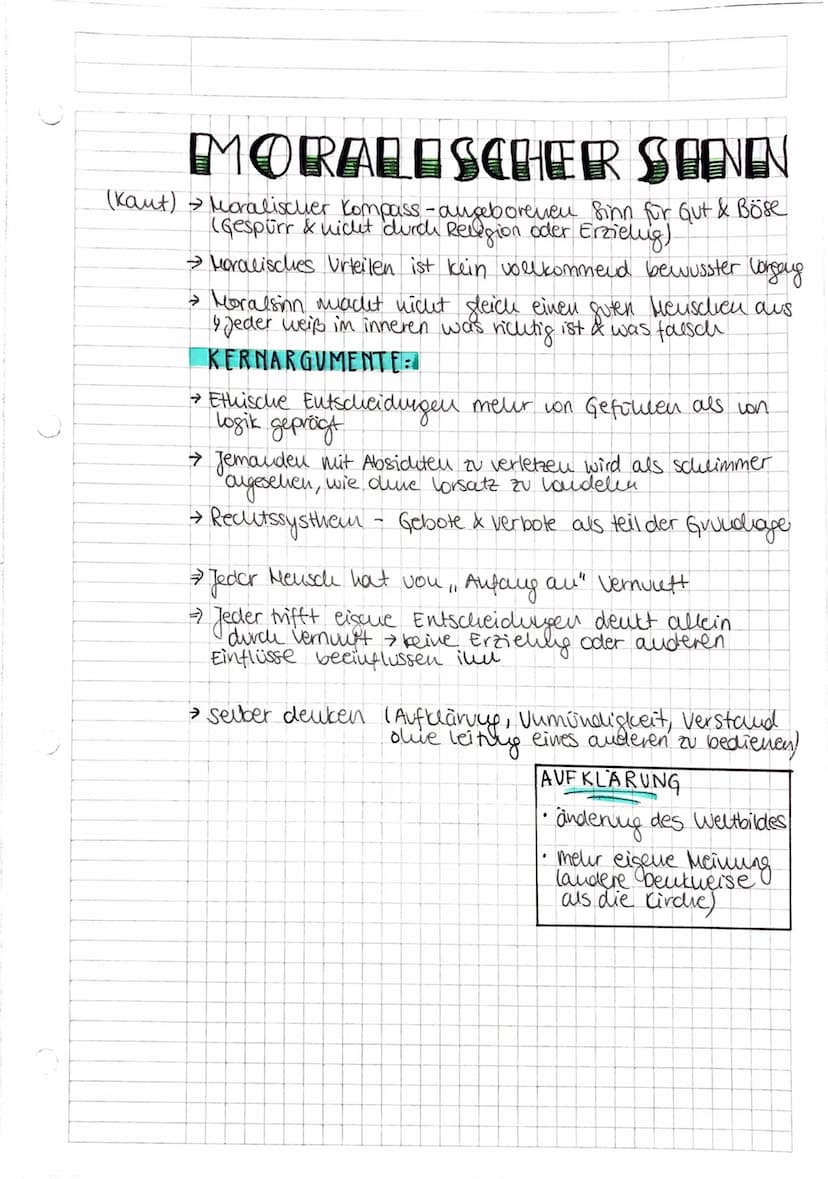 MORALISCHER SINN
(Kant) → Moralischer Kompass - angeborenen Sinn für Gut & Böse
(Gespürr & nicht durch Religion oder Erziehug)
→ Moralisches Urteilen ist kein vollkommend bewusster Vorgang
→ Moralsinn macht nicht gleich einen guten Menschen aus
↳ Jeder weiß im inneren was richtig ist & was falsch
KERNARGUMENTE:
→ Ethische Entscheidungen mehr von Gefühlen als von
Logik geprägt
→ Jemanden mit Absichten zu verletzen wird als schlimmer
angesehen, wie ohne Vorsatz zu handeln
→ Rechtssysthem - Gebote & Verbote als teil der Grundlage
⇒ Jeder Mensch hat von „Anfang an" Vernunft
⇒ Jeder trifft eigene Entscheidungen denkt allein
durch Vernunft → keine Erziehug oder anderen
Einflüsse beeinflussen ihn
→ selber denken (Aufklärung, Unmündigkeit, Verstand
ohne Leitung eines anderen zu bedienen)
AUFKLÄRUNG
• änderung des Weltbildes
• mehr eigene Meinung
(andere Denkweise
als die Kirche)